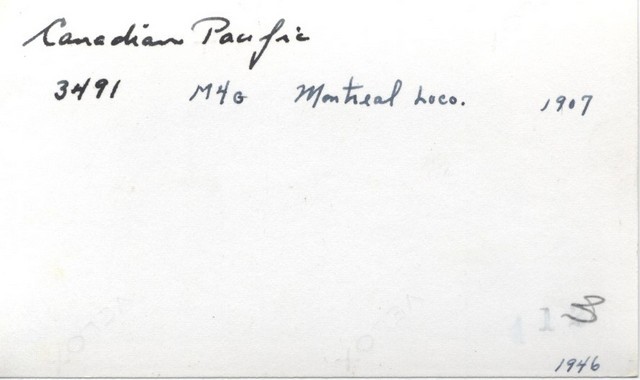 Canadian Pacific
3491 M4G Montreal Loco. 1907
1946